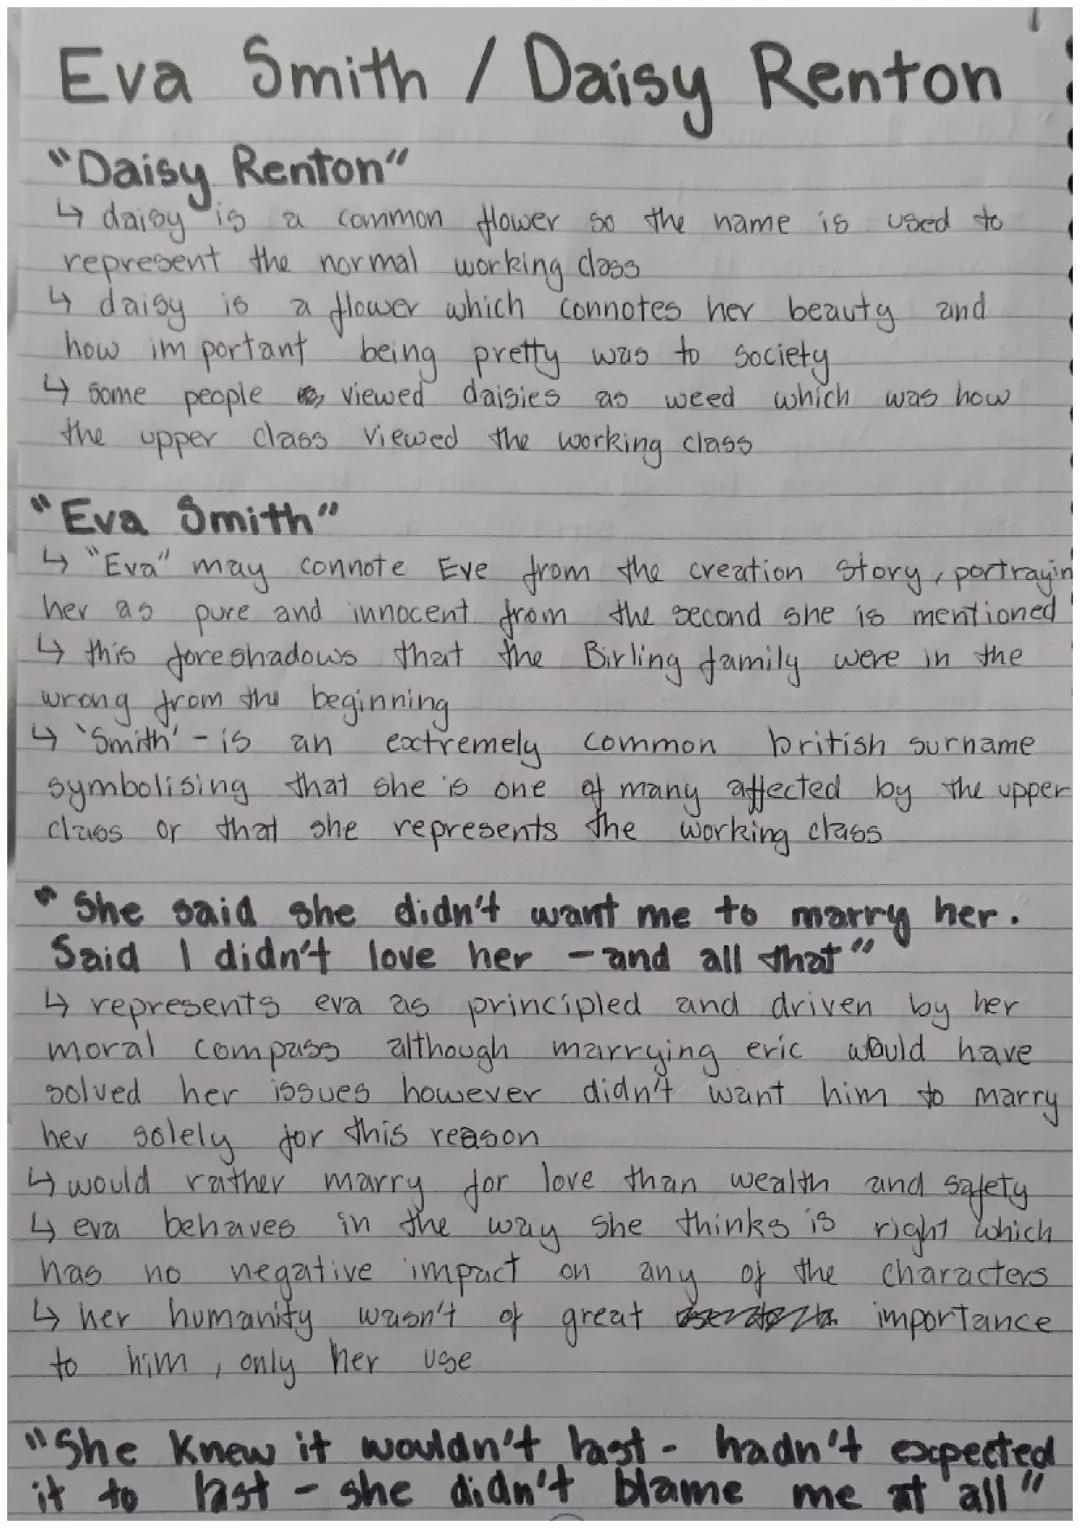 Eva Smith / Daisy Renton
"Daisy Renton"
↳ daisy is a common flower so the name is used to
represent the normal working class
↳ daisy is a flower which connotes her beauty and
how important being pretty was to society
↳ some people viewed daisies as weed which was how
the upper class viewed the working class
"Eva Smith"
↳ "Eva" may connote Eve from the creation story, portrayin
her as pure and innocent from the second she is mentioned
↳ this foreshadows that the Birling family were in the
wrong from the beginning
↳ 'Smith' - is an extremely common british surname
symbolising that she is one of many affected by the upper
class or that she represents the working class
"She said she didn't want me to marry her.
Said I didn't love her - and all that"
↳ represents eva as principled and driven by her
moral compass although marrying eric would have
solved her issues however didn't want him to marry
her solely for this reason
↳ would rather marry for love than wealth and safety
↳ eva behaves in the way she thinks is right which
has no negative impact on any of the characters
↳ her humanity wasn't of great importance
to him, only her use
"She knew it wouldn't last - hadn't expected
it to last - she didn't blame me at all"